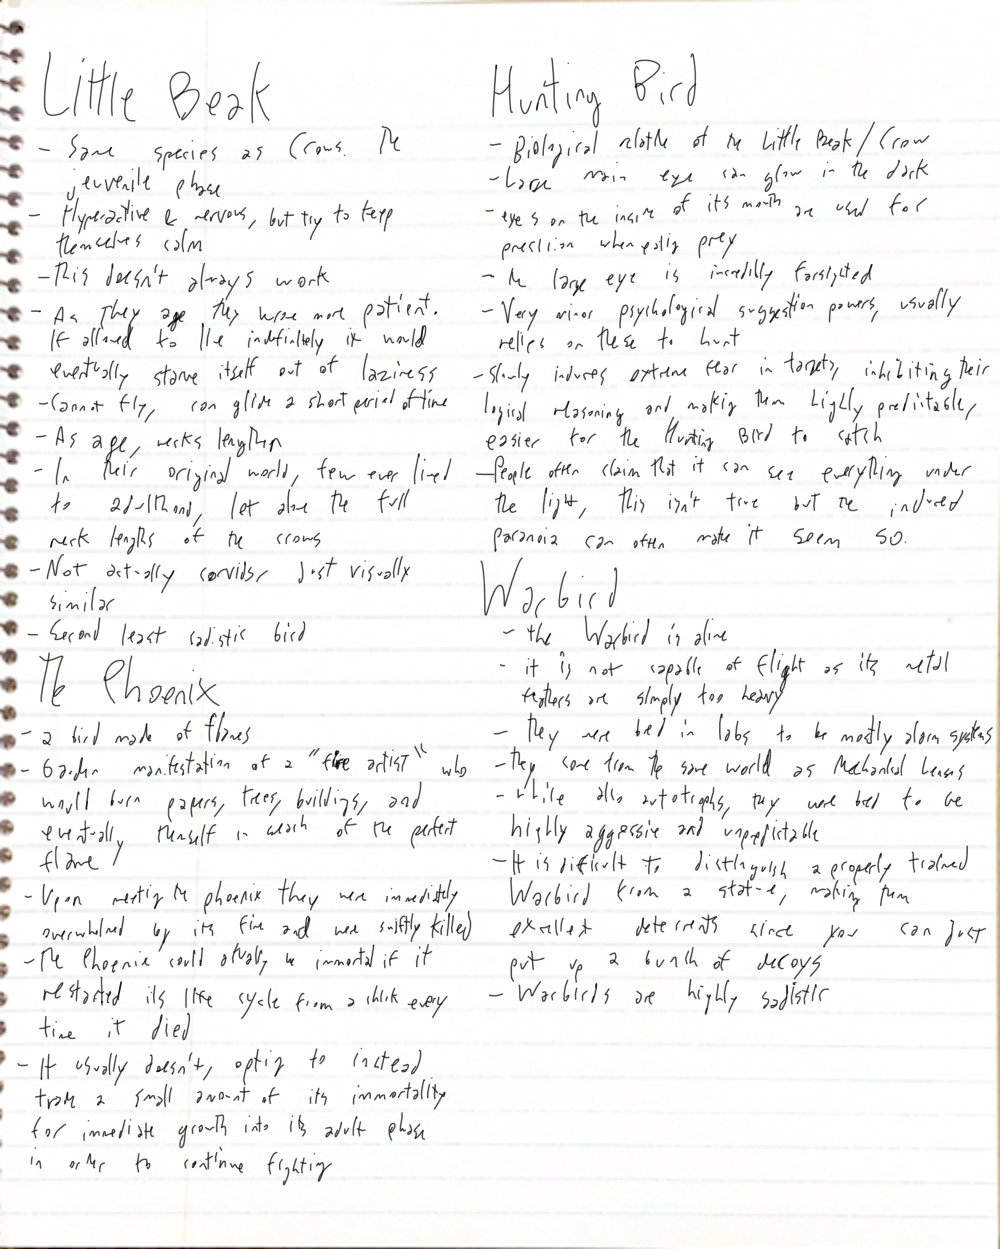 Little Beak
- Same species as Crows. The
juvenile phase
- Hyperactive & nervous, but try to keep
themselves calm
- This doesn't always work
- As they age they become more patient.
If allowed to live indefinitely it would
eventually starve itself out of laziness
- Cannot fly, can glide a short period of time
- As age, necks lengthen
- In their original world, few ever lived
to adulthood, let alone the full
neck lengths of the crows
- Not actually corvids, just visually
similar
- Second least sadistic bird
The Phoenix
- a bird made of flames
- Garden manifestation of a "fire artist" who
would burn papers, trees, buildings, and
eventually themself in search of the perfect
flame
- Upon meeting the phoenix they were immediately
overwhelmed by its fire and were swiftly killed
- The Phoenix could actually be immortal if it
restarted its life cycle from a chick every
time it died
- It usually doesn't, opting to instead
trade a small amount of its immortality
for immediate growth into its adult phase
in order to continue fighting
Hunting Bird
- Biological relative of the Little Beak/Crow
- Large main eye can glow in the dark
- eyes on the inside of its mouth are used for
precision when eating prey
- The large eye is incredibly farsighted
- Very minor psychological suggestion powers, usually
relies on these to hunt
- Slowly induces extreme fear in targets, inhibiting their
logical reasoning and making them highly predictable,
easier for the Hunting Bird to catch
- People often claim that it can see everything under
the light, this isn't true but the induced
paranoia can often make it seem so.
Warbird
- the Warbird is alive
- it is not capable of flight as its metal
feathers are simply too heavy
- they were bred in labs to be mostly alarm systems
- they come from the same world as Mechanical
- while also autotrophs, they were bred to be
highly aggressive and unpredictable
- It is difficult to distinguish a properly trained
Warbird from a statue, making them
excellent deterrents since you can just
put up a bunch of decoys
- Warbirds are highly sadistic